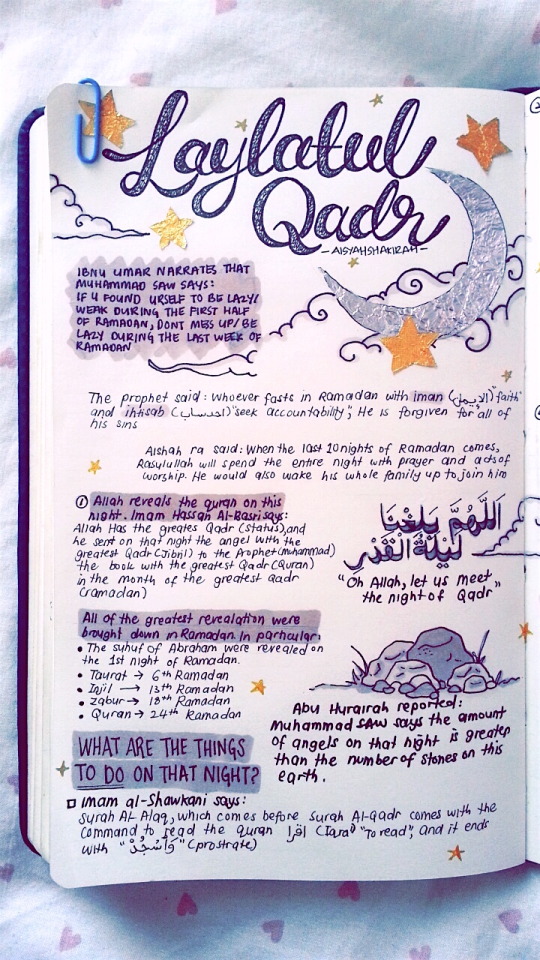 Laylatul
Qadr
-AISYAHSHAKIRAH-
IBNU UMAR NARRATES THAT
MUHAMMAD SAW SAYS:
IF U FOUND URSELF TO BE LAZY/
WEAK DURING THE FIRST HALF
OF RAMADAN, DONT MESS UP/BE
LAZY DURING THE LAST WEEK OF
RAMADAN
The prophet said: Whoever fasts in Ramadan with iman "faith"
and ihtisab (احتساب) "seek accountability", He is forgiven for all of
his sins
Aishah ra said: When the last 10 nights of Ramadan comes,
Rasulullah will spend the entire night with prayer and acts of
worship. He would also wake his whole family up to join him
① Allah reveals the quran on this
night. Imam Hassan Al-Basri says:
Allah Has the greates Qadr (status), and
he sent on that night the angel with the
greatest Qadr (Jibril) to the Prophet (Muhammad)
the book with the greatest Qadr (Quran)
in the month of the greatest Qadr
(ramadan)
اللّٰهُمَّ بَلِّغْنَا
لَيْلَةَ الْقَدْرِ
"Oh Allah, let us meet"
the night of Qadr
All of the greatest revealation were
brought down in Ramadan. In particular:
• The suhuf of Abraham were revealed on
the 1st night of Ramadan.
• Taurat → 6th Ramadan
• Injil → 13th Ramadan
• Zabur → 18th Ramadan
• Quran → 24th Ramadan
Abu Hurairah reported:
Muhammad SAW says the amount
of angels on that night is greater
than the number of stones on this
earth.
WHAT ARE THE THINGS
TO DO ON THAT NIGHT?
Imam al-Shawkani says:
Surah Al-Alaq, which comes before Surah Al-Qadr comes with the
command to read the Quran اقرأ (Iqra) "To read", and it ends
with "وَاسْجُدْ" (prostrate)